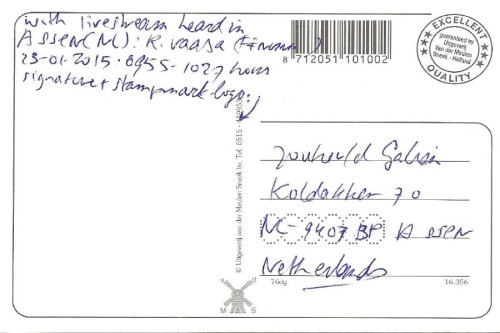 with livestream heard in
Assen (NL): R. Vaasa
23-01-2015 · 0955-1027 hours
signature + stampmark logo:
8 712051 101002
EXCELLENT
guaranteed by
Uitgeverij
Van der Meulen
Sneek - Holland
QUALITY
© Uitgeverij van der Meulen Sneek bv. Tel. 0515 -
Koldakker 70
NL-9407 BP Assen
Netherlands
M S
76dg
16.356